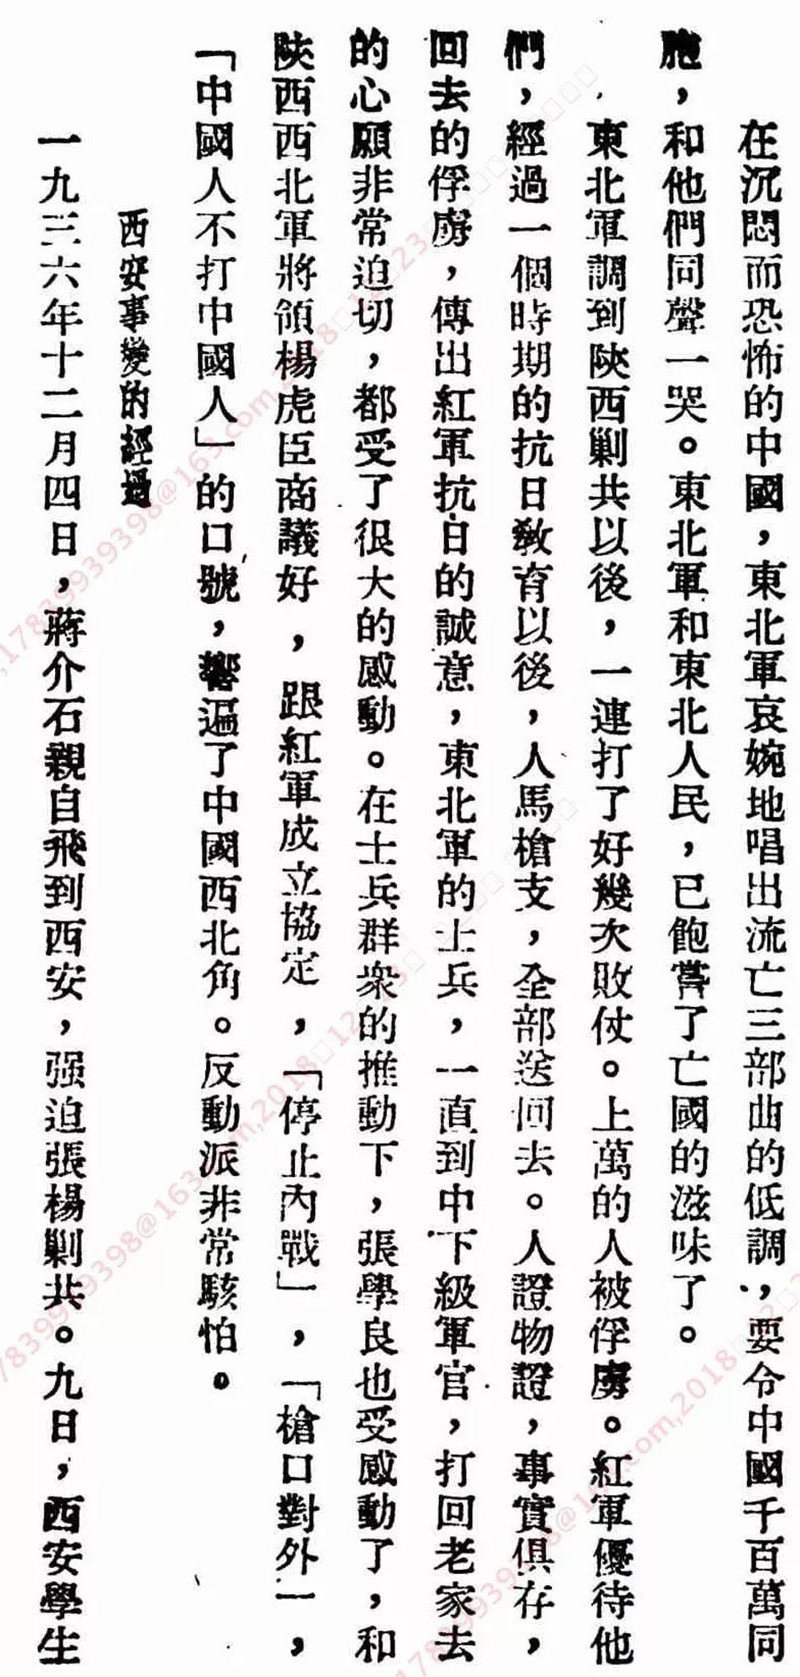 在沉悶而恐怖的中國，東北軍哀婉地唱出流亡三部曲的低調，要令中國千百萬同
胞，和他們同聲一哭。東北軍和東北人民，已飽嘗了亡國的滋味了。
東北軍調到陝西剿共以後，一連打了好幾次敗仗。上萬的人被俘虜。紅軍優待他
們，經過一個時期的抗日教育以後，人馬槍支，全部送回去。人證物證，事實俱存，
回去的俘虜，傳出紅軍抗日的誠意，東北軍的士兵，一直到中下級軍官，打回老家去
的心願非常迫切，都受了很大的感動。在士兵群衆的推動下，張學良也受感動了，和
陝西西北軍將領楊虎臣商議好，跟紅軍成立協定，「停止內戰」，「槍口對外」，
「中國人不打中國人」的口號，響遍了中國西北角。反動派非常駭怕。
西安事變的經過
一九三六年十二月四日，蔣介石親自飛到西安，强迫張楊剿共。九日，西安學生